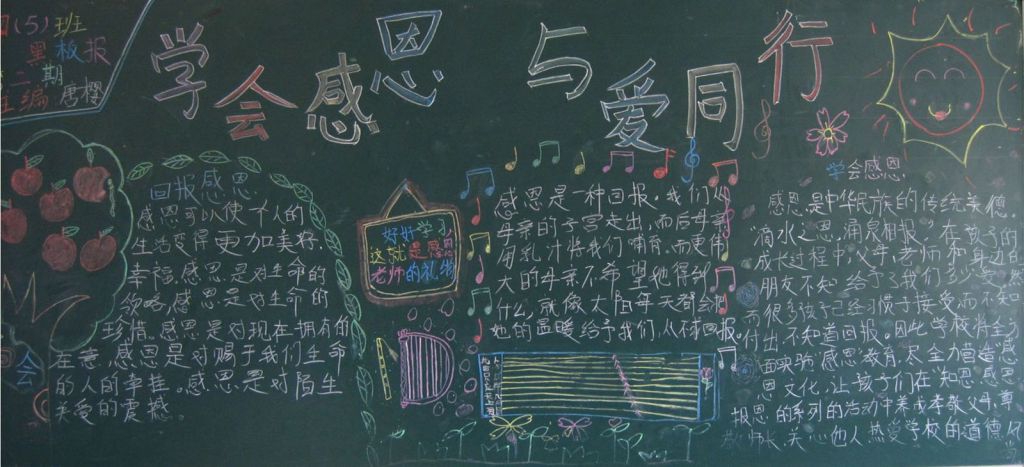 (5)班
黑板报
二期
主编 唐樱
学会感恩 与爱同行
回报感恩
感恩可以使个人的
生活变得更加美好.
幸福.感恩是对生命的
领略,感恩是对生命的
珍惜.感恩是对现在拥有的
在意,感恩是对赐于我们生命
的人的牵挂。感恩是对陌生
关爱的震撼。
好好学习
这就是感恩
老师的礼物
感恩是一种回报。我们从
母亲的子宫走出,而后母亲
用乳汁将我们哺育.而更伟
大的母亲不希望她得到
什么.就像太阳每天都会把
她的温暖给予我们,从不回报。
学会感恩
感恩是中华民族的传统美德。
"滴水之恩,涌泉相报。在孩子的
成长过程中,父母,老师和身边的
朋友不知给予了我们多少爱
而很多孩子已经习惯于接受而不知
付出.不知道回报。因此学校将全方
面实验"感恩"教育,大全力营造感
恩文化,让孩子们在"知恩.感恩
报恩的系列的活动中养成孝敬父母,尊
敬师长,关心他人热爱学校的道德
会